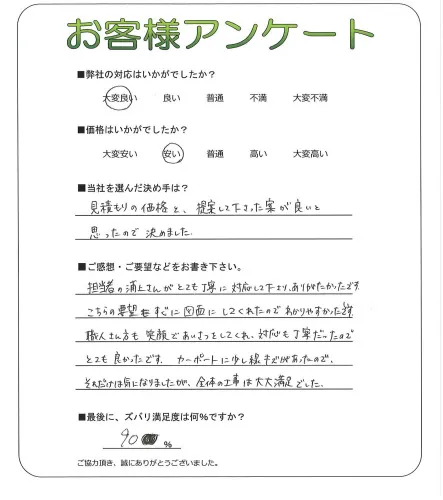 お客様アンケート
■弊社の対応はいかがでしたか?
大変良い 良い 普通 不満 大変不満
■価格はいかがでしたか?
大変安い 安い 普通 高い 大変高い
■当社を選んだ決め手は?
見積もりの価格と、提案して下さった案が良いと
思ったので決めました。
■ご感想・ご要望などをお書き下さい。
担当者の浦上さんがとても丁寧に対応して下さり、ありがたかったです。
こちらの要望もすぐに図面にしてくれたのでわかりやすかったです。
職人さん方も笑顔であいさつをしてくれ、対応も丁寧だったので
とても良かったです。カーポートに少し線キズがあったので、
それだけは気になりましたが、全体の工事は大大満足でした。
■最後に、ズバリ満足度は何%ですか?
90 %
ご協力頂き、誠にありがとうございました。